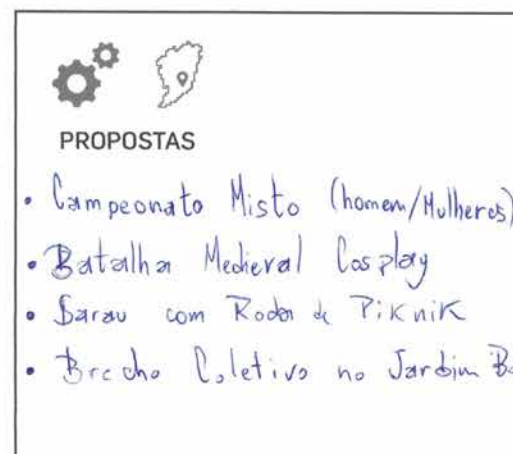 PROPOSTAS
• Campeonato Misto (homem/Mulheres)
• Batalha Medieval Cosplay
• Sarau com Roda de PiKniK
• Brecho Coletivo no Jardim